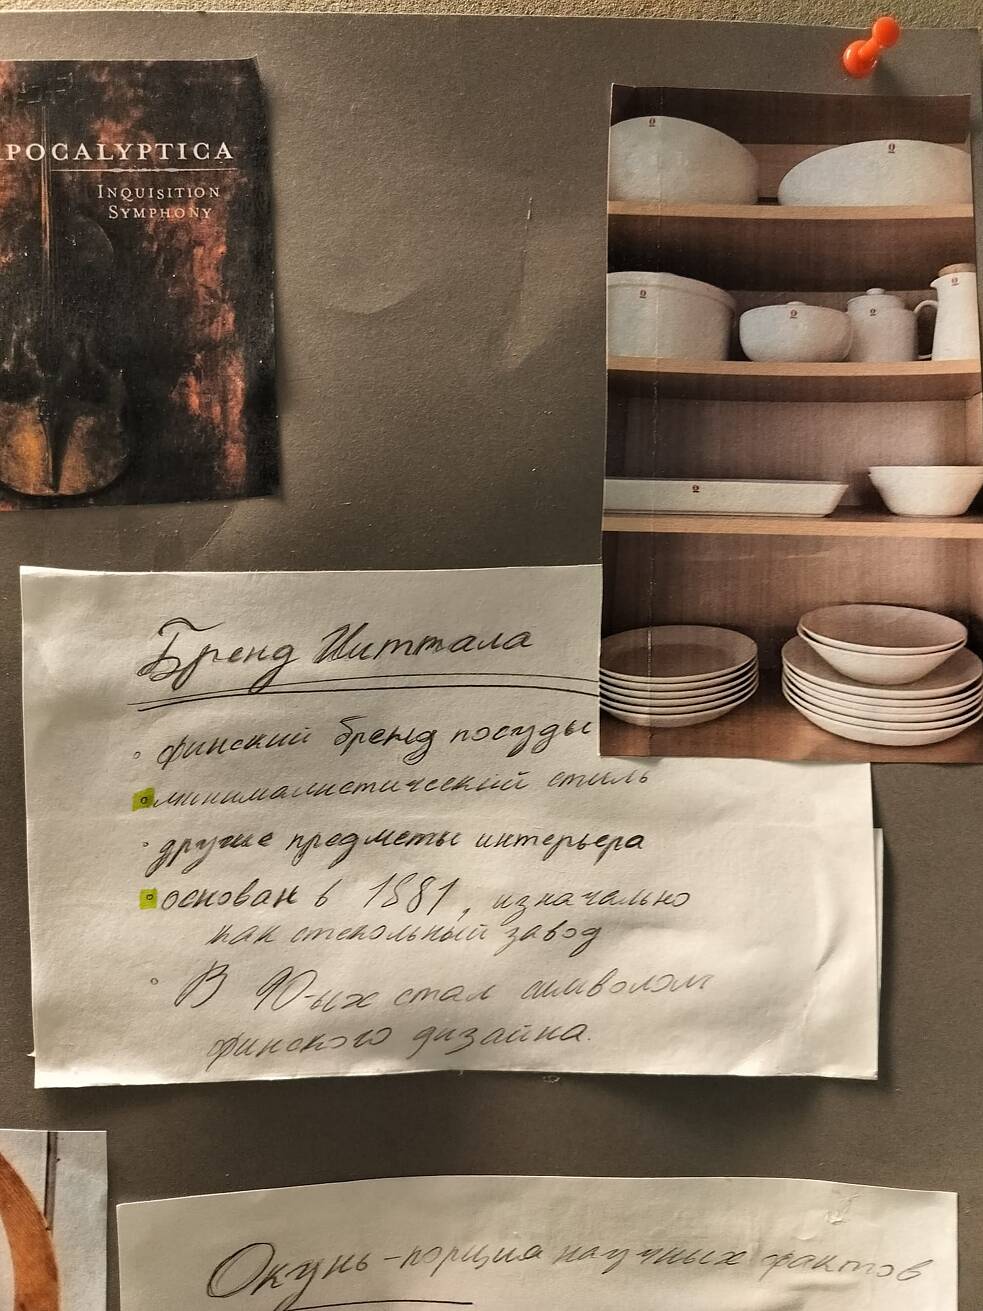 POCALYPTICA
INQUISITION
SYMPHONY
Бренд Ииттала
финский бренд посуды
минималистический стиль
другие предметы интерьера
основан в 1881, изначально
как стекольный завод
В 90-ых стал символом
финского дизайна.
Окунь-порция научных фактов